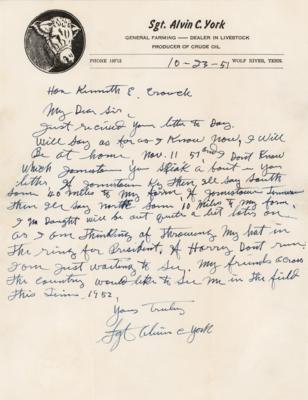 Sgt. Alvin C. York
GENERAL FARMING — DEALER IN LIVESTOCK
PRODUCER OF CRUDE OIL
PHONE 19F12
WOLF RIVER, TENN.
10-23-51
Hon Kinnith E. Crouch
My Dear Sir,
Just recived your letter to Day.
Will say as for as I Know now, I Will
Be at home, Nov. 11 51, and I Dont Know
Which Jamestown you Speak a bout in your
letter if Jamestown Ky then Ile say South
Som 40 miles to My form if Jamestown Tennessee
then Ile say north som 10 miles to my form.
I no Daught will be out quite a bit later on
as I am Thinking of Throwing My hat in
The ring for President, if Harry Dont run.
I am Just waiting to See. My friends across
the country would like to See Me in the field
this time 1952,
yours Truly
Sgt Alvin C York